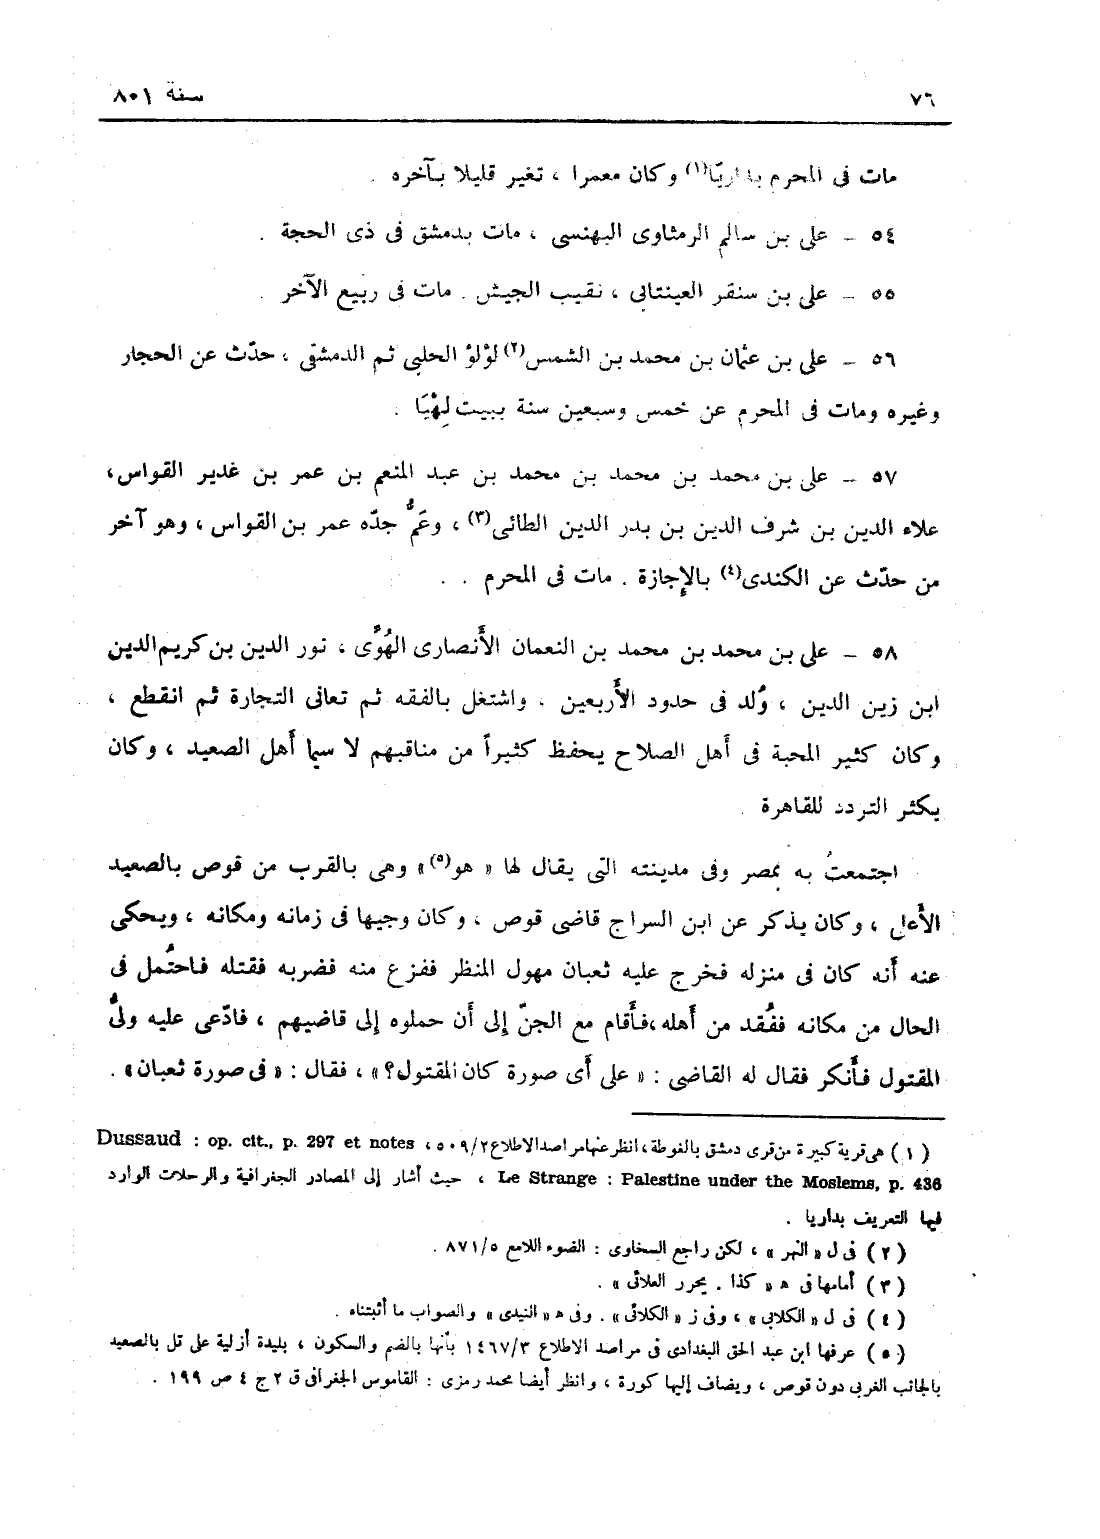 ٧٦
سنة ٨٠١
مات فى المحرم بداريّا(١) وكان معمرا ، تغير قليلا بآخره .
٥٤ – على بن سالم الرمثاوى البهنسى ، مات بدمشق فى ذى الحجة .
٥٥ – على بن سنقر العينتابى ، نقيب الجيش . مات فى ربيع الآخر .
٥٦ – على بن عثمان بن محمد بن الشمس(٢) لؤلؤ الحلبى ثم الدمشقى ، حدّث عن الحجار
وغيره ومات فى المحرم عن خمس وسبعين سنة ببيت لِهْيَا .
٥٧ – على بن محمد بن محمد بن محمد بن عبد المنعم بن عمر بن غدير القواس،
علاء الدين بن شرف الدين بن بدر الدين الطائى(٣) ، وعَمُّ جدّه عمر بن القواس ، وهو آخر
من حدّث عن الكندى(٤) بالإجازة . مات فى المحرم . .
٥٨ – على بن محمد بن محمد بن النعمان الأنصارى الهُوِّى ، نور الدين بن كريم الدين
ابن زين الدين ، وُلد فى حدود الأربعين . واشتغل بالفقه ثم تعانى التجارة ثم انقطع ،
وكان كثير المحبة فى أهل الصلاح يحفظ كثيراً من مناقبهم لا سيما أهل الصعيد ، وكان
يكثر التردد للقاهرة .
اجتمعتُ به بمصر وفى مدينته التى يقال لها « هو(٥)» وهى بالقرب من قوص بالصعيد
الأعلى ، وكان يذكر عن ابن السراج قاضى قوص ، وكان وجيها فى زمانه ومكانه ، ويحكى
عنه أنه كان فى منزله فخرج عليه ثعبان مهول المنظر ففزع منه فضربه فقتله فاحتُمل فى
الحال من مكانه ففُقد من أهله ،فأقام مع الجنّ إلى أن حملوه إلى قاضيهم ، فادّعى عليه ولىُّ
المقتول فأنكر فقال له القاضى : « على أى صورة كان المقتول؟» ، فقال : « فى صورة ثعبان» .
( ١ ) هى قرية كبيرة من قرى دمشق بالغوطة ، انظر عنها مراصد الاطلاع ٥٠٩/٢ ، Dussaud : op. cit., p. 297 et notes
Le Strange : Palestine under the Moslems, p. 436 ، حيث أشار إلى المصادر الجغرافية والرحلات الوارد
فيها التعريف بداريا .
( ٢ ) فى ل « النهر » ، لكن راجع السخاوى : الضوء اللامع ٨٧١/٥ .
( ٣ ) أمامها فى ه « كذا . يحرر العلائى » .
( ٤ ) فى ل « الكلابى » ، وفى ز « الكلائى» . وفى ه « النيدى » والصواب ما أثبتناه .
( ٥ ) عرفها ابن عبد الحق البغدادى فى مراصد الاطلاع ١٤٦٧/٣ بأنها بالضم والسكون ، بليدة أزلية على تل بالصعيد
بالجانب الغربى دون قوص ، ويضاف إليها كورة ، وانظر أيضا محمد رمزى : القاموس الجغرافى ق ٢ ج ٤ ص ١٩٩ .